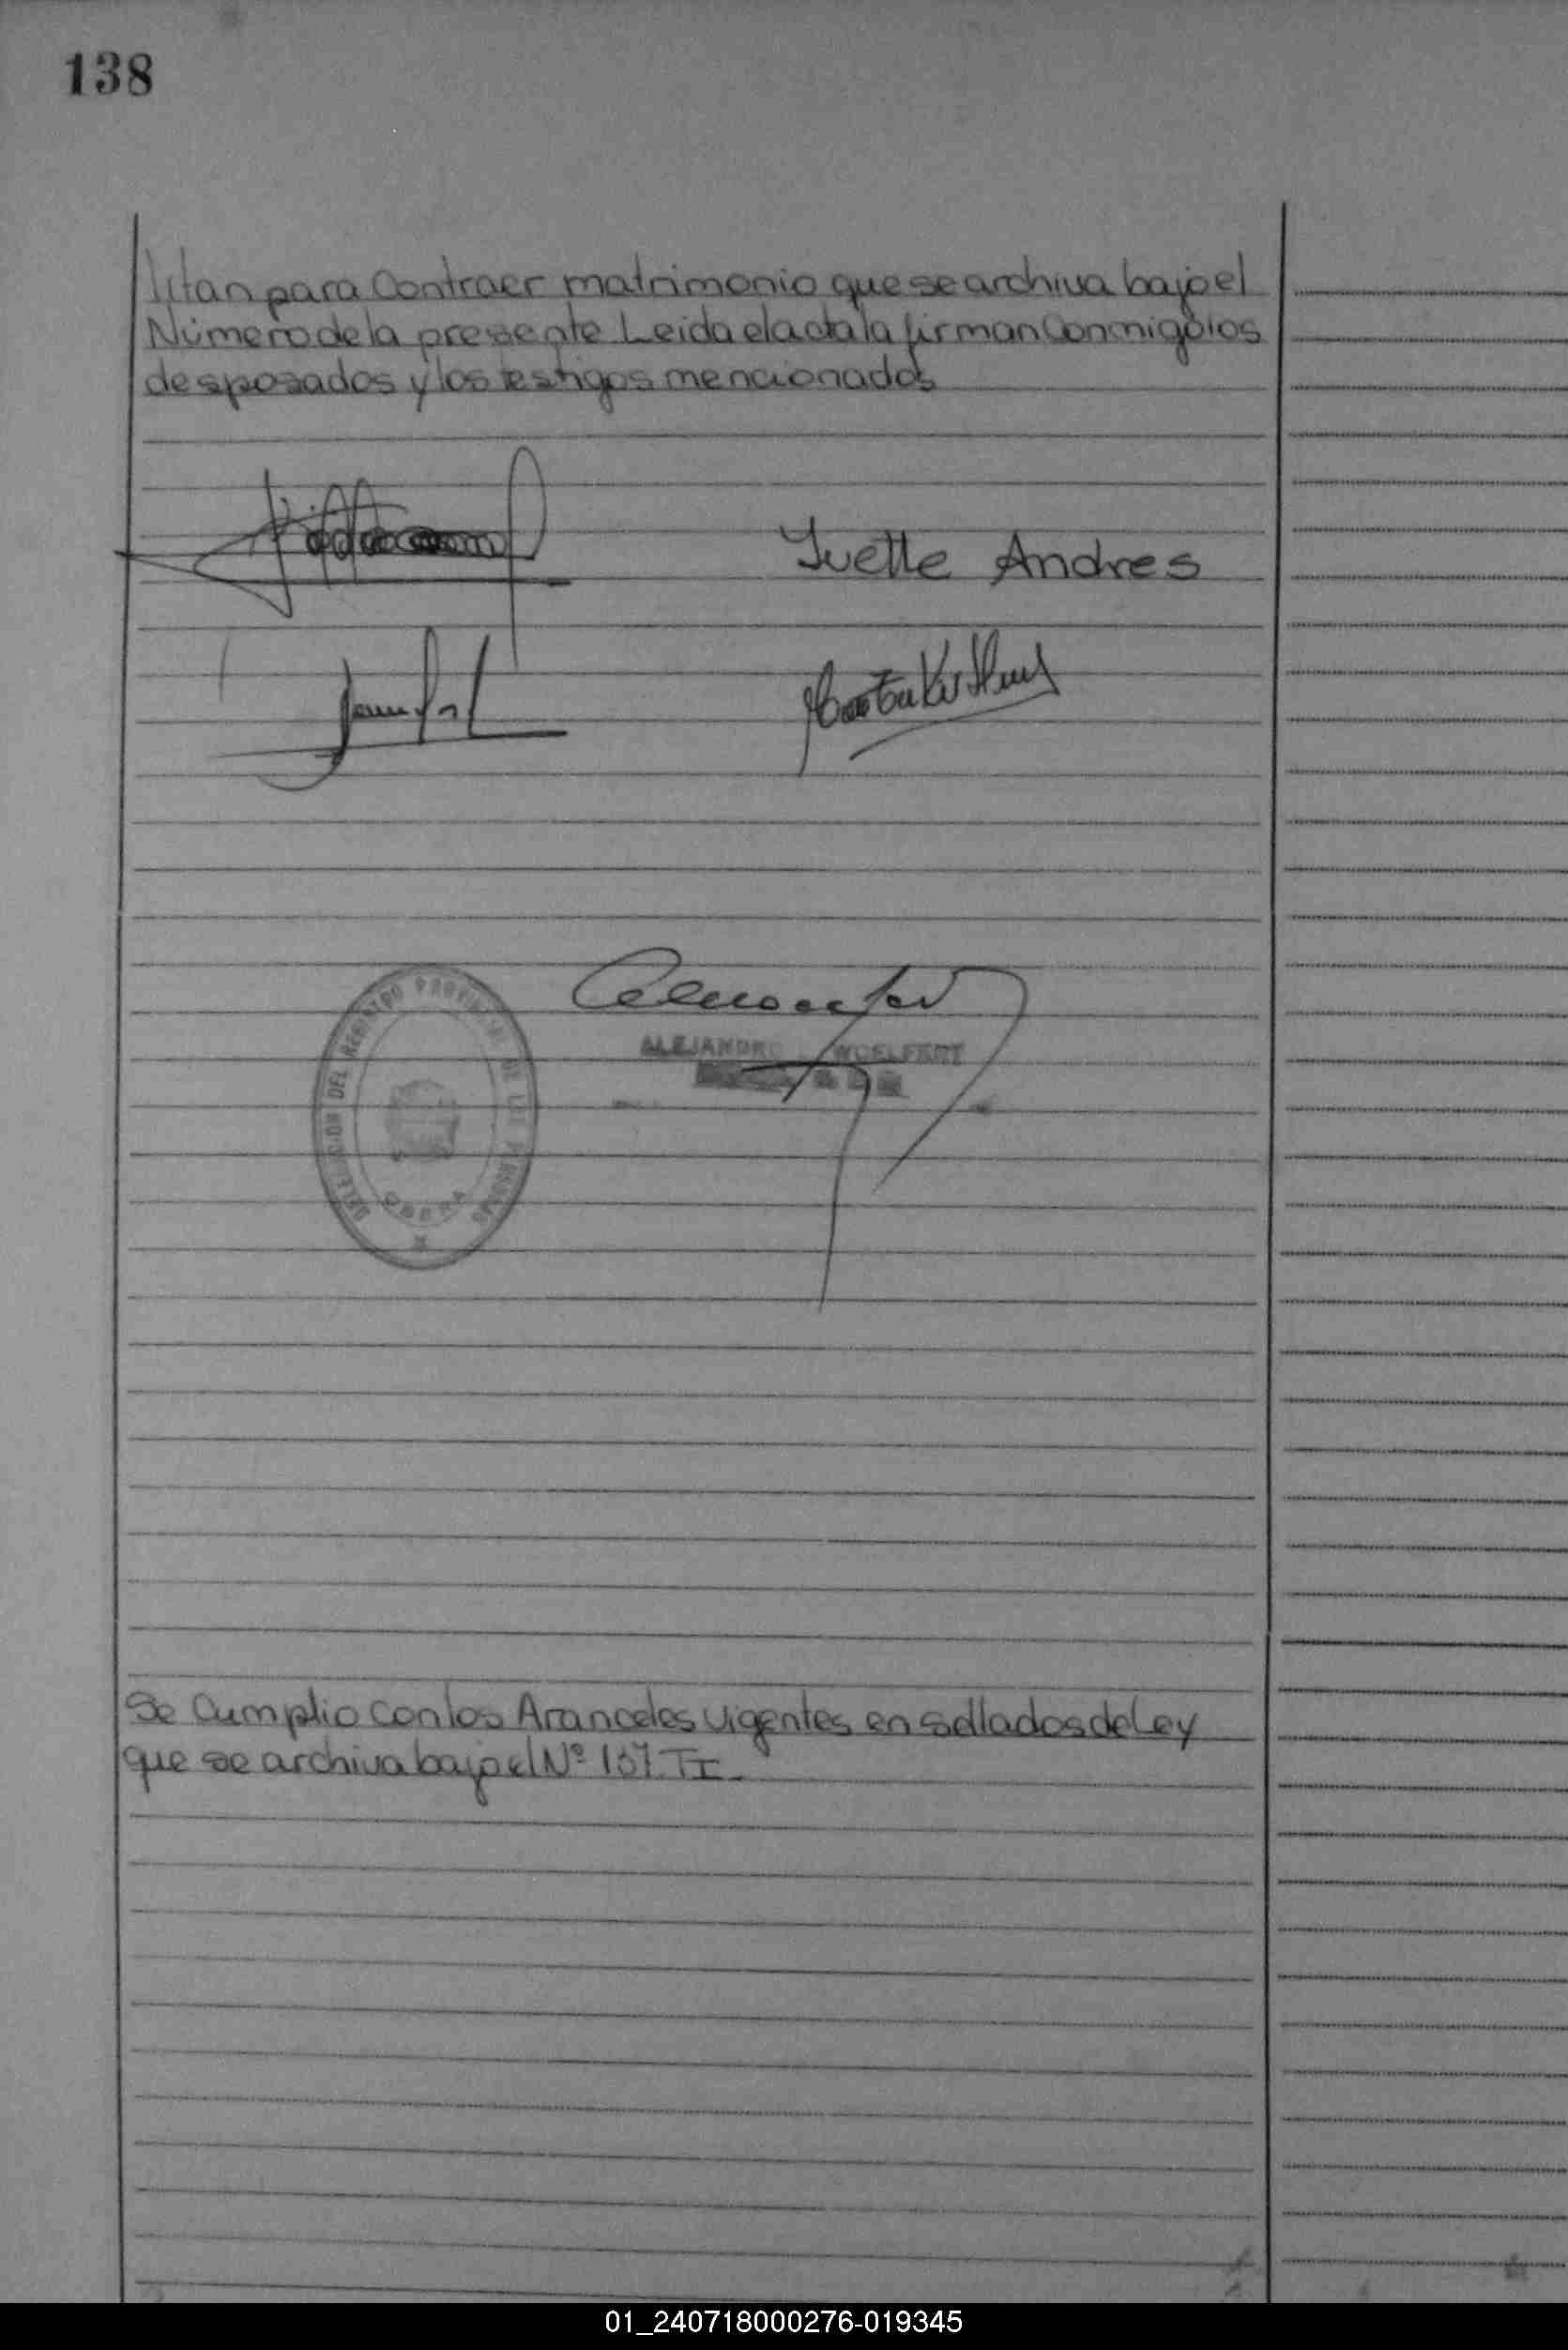 138
litan para Contraer matrimonio que se archiva bajo el
Número de la presente Leida el acta la firman Conmigo los
desposados y los testigos mencionados
Ivette Andres
DELEGACION DEL REGISTRO PROVINCIAL DE LAS PERSONAS
OBERA
ALEJANDRO WOELFERT
Se Cumplio con los Aranceles vigentes en sellados de Ley
que se archiva bajo el Nº 137 TI
01_240718000276-019345